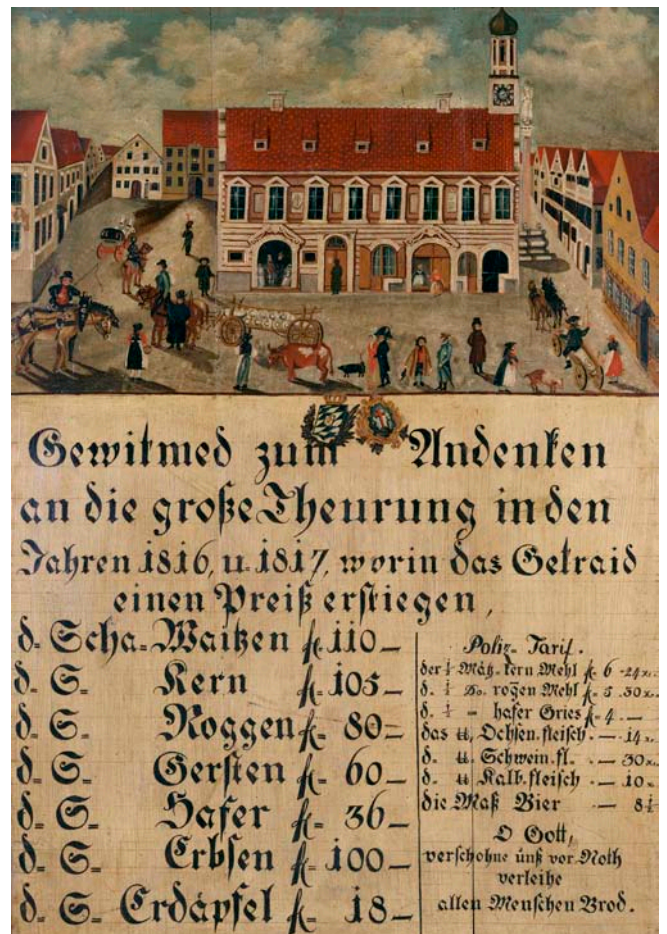 Gewitmed zum Andenken
an die große Theurung in den
Jahren 1816, u. 1817, worin das Getraid
einen Preiß erstiegen,
d. Scha= Waitzen fl. 110 —
d= S= Kern fl. 105 —
d= S= Roggen fl= 80 =
d= S= Gersten fl= 60 —
d= S= Hafer fl= 36 —
d= S= Erbsen fl= 100 —
d= S= Erdäpfel fl= 18 —
Poliz= Tarif.
der ¼ Mäz= kern Mehl fl. 6 - 24 x.
d. ¼ Do. rogen Mehl fl= 5 . 30 x.
d. ¼ = hafer Gries fl= 4 . —
das ℔, Ochsen.fleisch . — 14 x.
d. ℔. Schwein.fl. — 30 x.
d. ℔ Kalb.fleisch . — 10 x.
die Maß Bier . — 8½
O Gott,
verschohne únß vor Noth
verleihe
allen Menschen Brod.